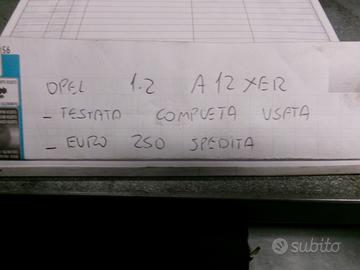 56
OPEL 1.2 A12XER
- TESTATA COMPLETA USATA
- EURO 250 SPEDITA
subito